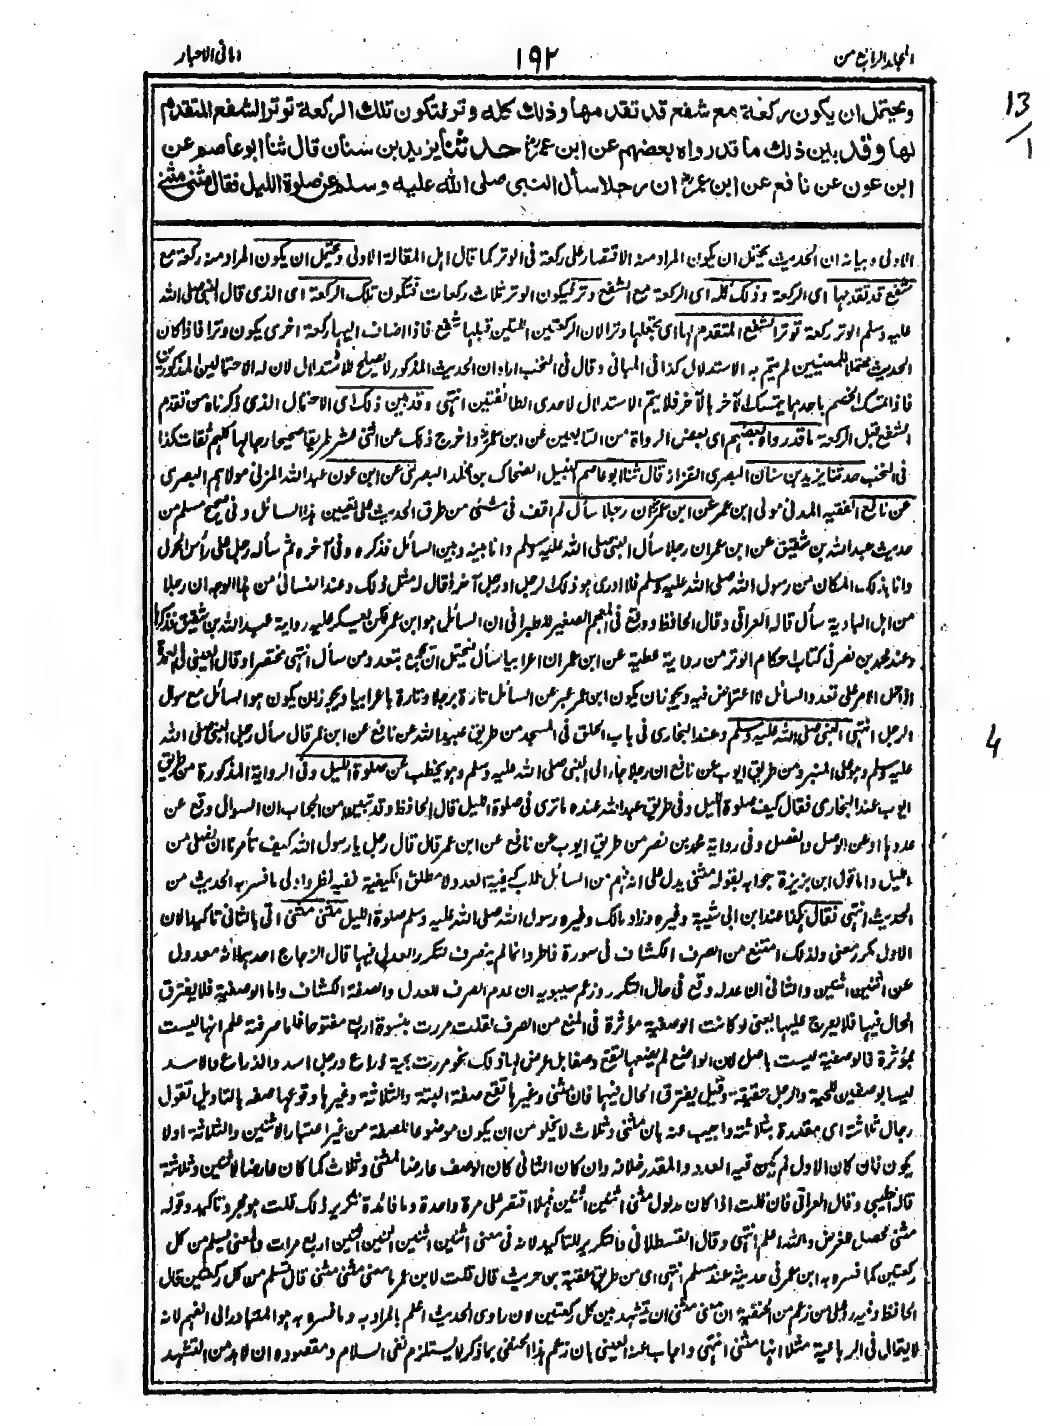 المجلد الرابع من
١٩٢
امانی الاحبار
13
1
ويحتمل ان يكون ركعة مع شفع قد تقدمها وذلك كله وتر فتكون تلك الركعة توتر الشفع المتقدم
لها وقد بين ذلك ما قد رواه بعضهم عن ابن عمرؓ حدثنا يزيد بن سنان قال ثنا ابو عاصم عن
ابن عون عن نافع عن ابن عمرؓ ان رجلا سأل النبي صلى الله عليه وسلم عن صلوة الليل فقال مثنى مثنى
الاولى وبيانه ان الحديث يحتمل ان يكون المراد منه الاقتصار على ركعة فى الوتر كما قال اهل المقالة الاولى ويحتمل ان يكون المراد منه ركعة مع
شفع قد تقدمها اى الركعة وذلك كله اى الركعة مع الشفع وتر فيكون الوتر ثلاث ركعات فتكون تلك الركعة اى الذى قال النبى صلى الله
عليه وسلم الوتر ركعة توتر الشفع المتقدم لها اى تجعلها وترا لان الركعتين اللتين قبلها شفع فاذا اضاف اليها ركعة اخرى يكون وترا فاذا كان
الحديث محتملا للمعنيين لم يتم به الاستدلال كذا فى المبانى وقال فى النخب اراد ان الحديث المذكور لا يصلح للاستدلال لان له الاحتمالين المذكورين
فاذا تمسك الخصم باحدهما يتمسك الآخر بالآخر فلا يتم الاستدلال لاحدى الطائفتين انتهى وقد بين ذلك اى الاحتمال الذى ذكرناه من تقدم
الشفع قبل الركعة ما قد رواه بعضهم اى بعض الرواة من التابعين عن ابن عمرؓ واخرج ذلك عن اثنى عشر طريقا صحيحا رجالها كلهم ثقات كذا
فى النخب حدثنا يزيد بن سنان البصرى القزاز قال ثنا ابو عاصم النبيل الضحاك بن مخلد البصرى عن ابن عون عبد الله المزنى مولاهم البصرى
عن نافع الفقيه المدنى مولى ابن عمر عن ابن عمرؓ ان رجلا سأل لم اقف فى شئ من طرق الحديث على تعيين هذا السائل وفى صحيح مسلم من
حديث عبد الله بن شقيق عن ابن عمر ان رجلا سأل النبى صلى الله عليه وسلم وانا بينه وبين السائل فذكره وفى آخره ثم سأله رجل على رأس الحول
وانا بذلك المكان من رسول الله صلى الله عليه وسلم فلا ادرى هو ذلك الرجل او رجل آخر فقال له مثل ذلك وعند النسائى من هذا الوجه ان رجلا
من اهل البادية سأل قاله العراقى وقال الحافظ ووقع فى المعجم الصغير للطبرانى ان السائل هو ابن عمر لكن يعكر عليه رواية عبد الله بن شقيق فذكرها
وعند محمد بن نصر فى كتاب احكام الوتر من رواية عطية عن ابن عمر ان اعرابيا سأل فيحتمل ان يجمع بتعدد من سأل انتهى مختصرا وقال العينى فى العمدة
اذا حمل الامر على تعدد السائل لا اعتراض فيه ويجوز ان يكون ابن عمر عبر عن السائل تارة برجل وتارة باعرابيا ويجوز ان يكون هو السائل مع سوال
الرجل انتهى النبى صلى الله عليه وسلم وعند البخارى فى باب الحلق فى المسجد من طريق عبيد الله عن نافع عن ابن عمر قال سأل رجل النبى صلى الله
عليه وسلم وهو على المنبر ومن طريق ايوب عن نافع ان رجلا جاء الى النبى صلى الله عليه وسلم وهو يخطب عن صلوة الليل وفى الرواية المذكورة من طريق
ايوب عند البخارى فقال كيف صلوة الليل وفى طريق عبد الله عنده ما ترى فى صلوة الليل قال الحافظ وقد تبين من الجواب ان السوال وقع عن
عددها او عن الوصل والفصل وفى رواية محمد بن نصر من طريق ايوب عن نافع عن ابن عمر قال قال رجل يا رسول الله كيف تأمرنا ان نصلى من
الليل واما قول ابن بزيزة جوابه بقوله مثنى يدل على انه فهم من السائل طلب كيفية العدد لا مطلق الكيفية ففيه نظر واولى ما فسر به الحديث من
الحديث انتهى فقال هكذا عند ابن ابى شيبة وغيره وزاد مالك وغيره رسول الله صلى الله عليه وسلم صلوة الليل مثنى مثنى اتى بالثانى تاكيدا لان
الاول مكرر معنى ولذلك امتنع من الصرف الكشاف فى سورة فاطر وانما لم ينصرف لتكرر العدل فيها قال الزجاج احدهما انه معدول
عن اثنين اثنين والثانى ان عدله وقع فى حال التكرر وزعم سيبويه ان عدم الصرف للعدل والصفة الكشاف واما الوصفية فلا يفترق
الحال فيها فلا يعرج عليها يعنى لو كانت الوصفية مؤثرة فى المنع من الصرف لقلت مررت بنسوة اربع مفتوحا فلما صرفته علم انها ليست
بمؤثرة فالوصفية ليست باصل لان الواضع لم يضعها لتقع وصفا بل عرض لها ذلك نحو مررت بحية ذراع ورجل اسد والذراع والاسد
ليسا بوصفين للحية والرجل حقيقة وقيل يفترق الحال فيها فان مثنى وغيرها تقع صفة البتة والثلاثة وغيرها وقوعها صفة بالتاويل تقول
رجال ثلاثة اى مقدرة بثلاثة واجيب عنه بان مثنى وثلاث لا يخلو من ان يكون موضوعا للصفة من غير اعتبار الاثنين والثلاثة اولا
يكون فان كان الاول لم يكن فيه العدد والمقدر خلافه وان كان الثانى كان الوصف عارضا لمثنى وثلاث كما كان عارضا لاثنين وثلاثة
قاله الطيبى وقال العراقى فان قلت اذا كان مدلول مثنى اثنين اثنين فهلا اقتصر على مرة واحدة وما فائدة تكرير ذلك قلت هو مجرد تاكيد وقوله
مثنى محصل للغرض والله اعلم انتهى وقال القسطلانى والتكرير للتاكيد لانه فى معنى اثنين اثنين اثنين اثنين اربع مرات والمعنى يسلم من كل
ركعتين كما فسره به ابن عمر فى حديثه عند مسلم انتهى اى من طريق عقبة بن حريث قال قلت لابن عمر ما معنى مثنى مثنى قال تسلم من كل ركعتين قال
الحافظ وفيه رد على من زعم من الحنفية ان معنى مثنى ان يتشهد بين كل ركعتين لان راوى الحديث اعلم بالمراد به وما فسره به هو المتبادر الى الفهم لانه
لا يقال فى الرباعية مثلا انها مثنى انتهى واجاب عنه العينى بان زعم هذا الحنفى بما ذكر لا يستلزم نفى السلام ومقصوده ان لا بد من التشهد
4